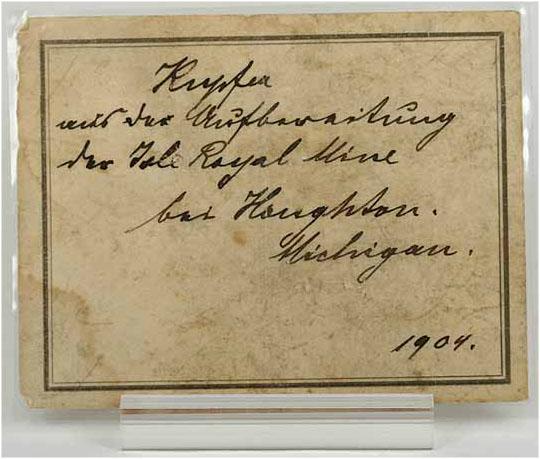 Kupfer
aus der Aufbereitung
der Isle Royal Mine
bei Houghton.
Michigan.
1904.